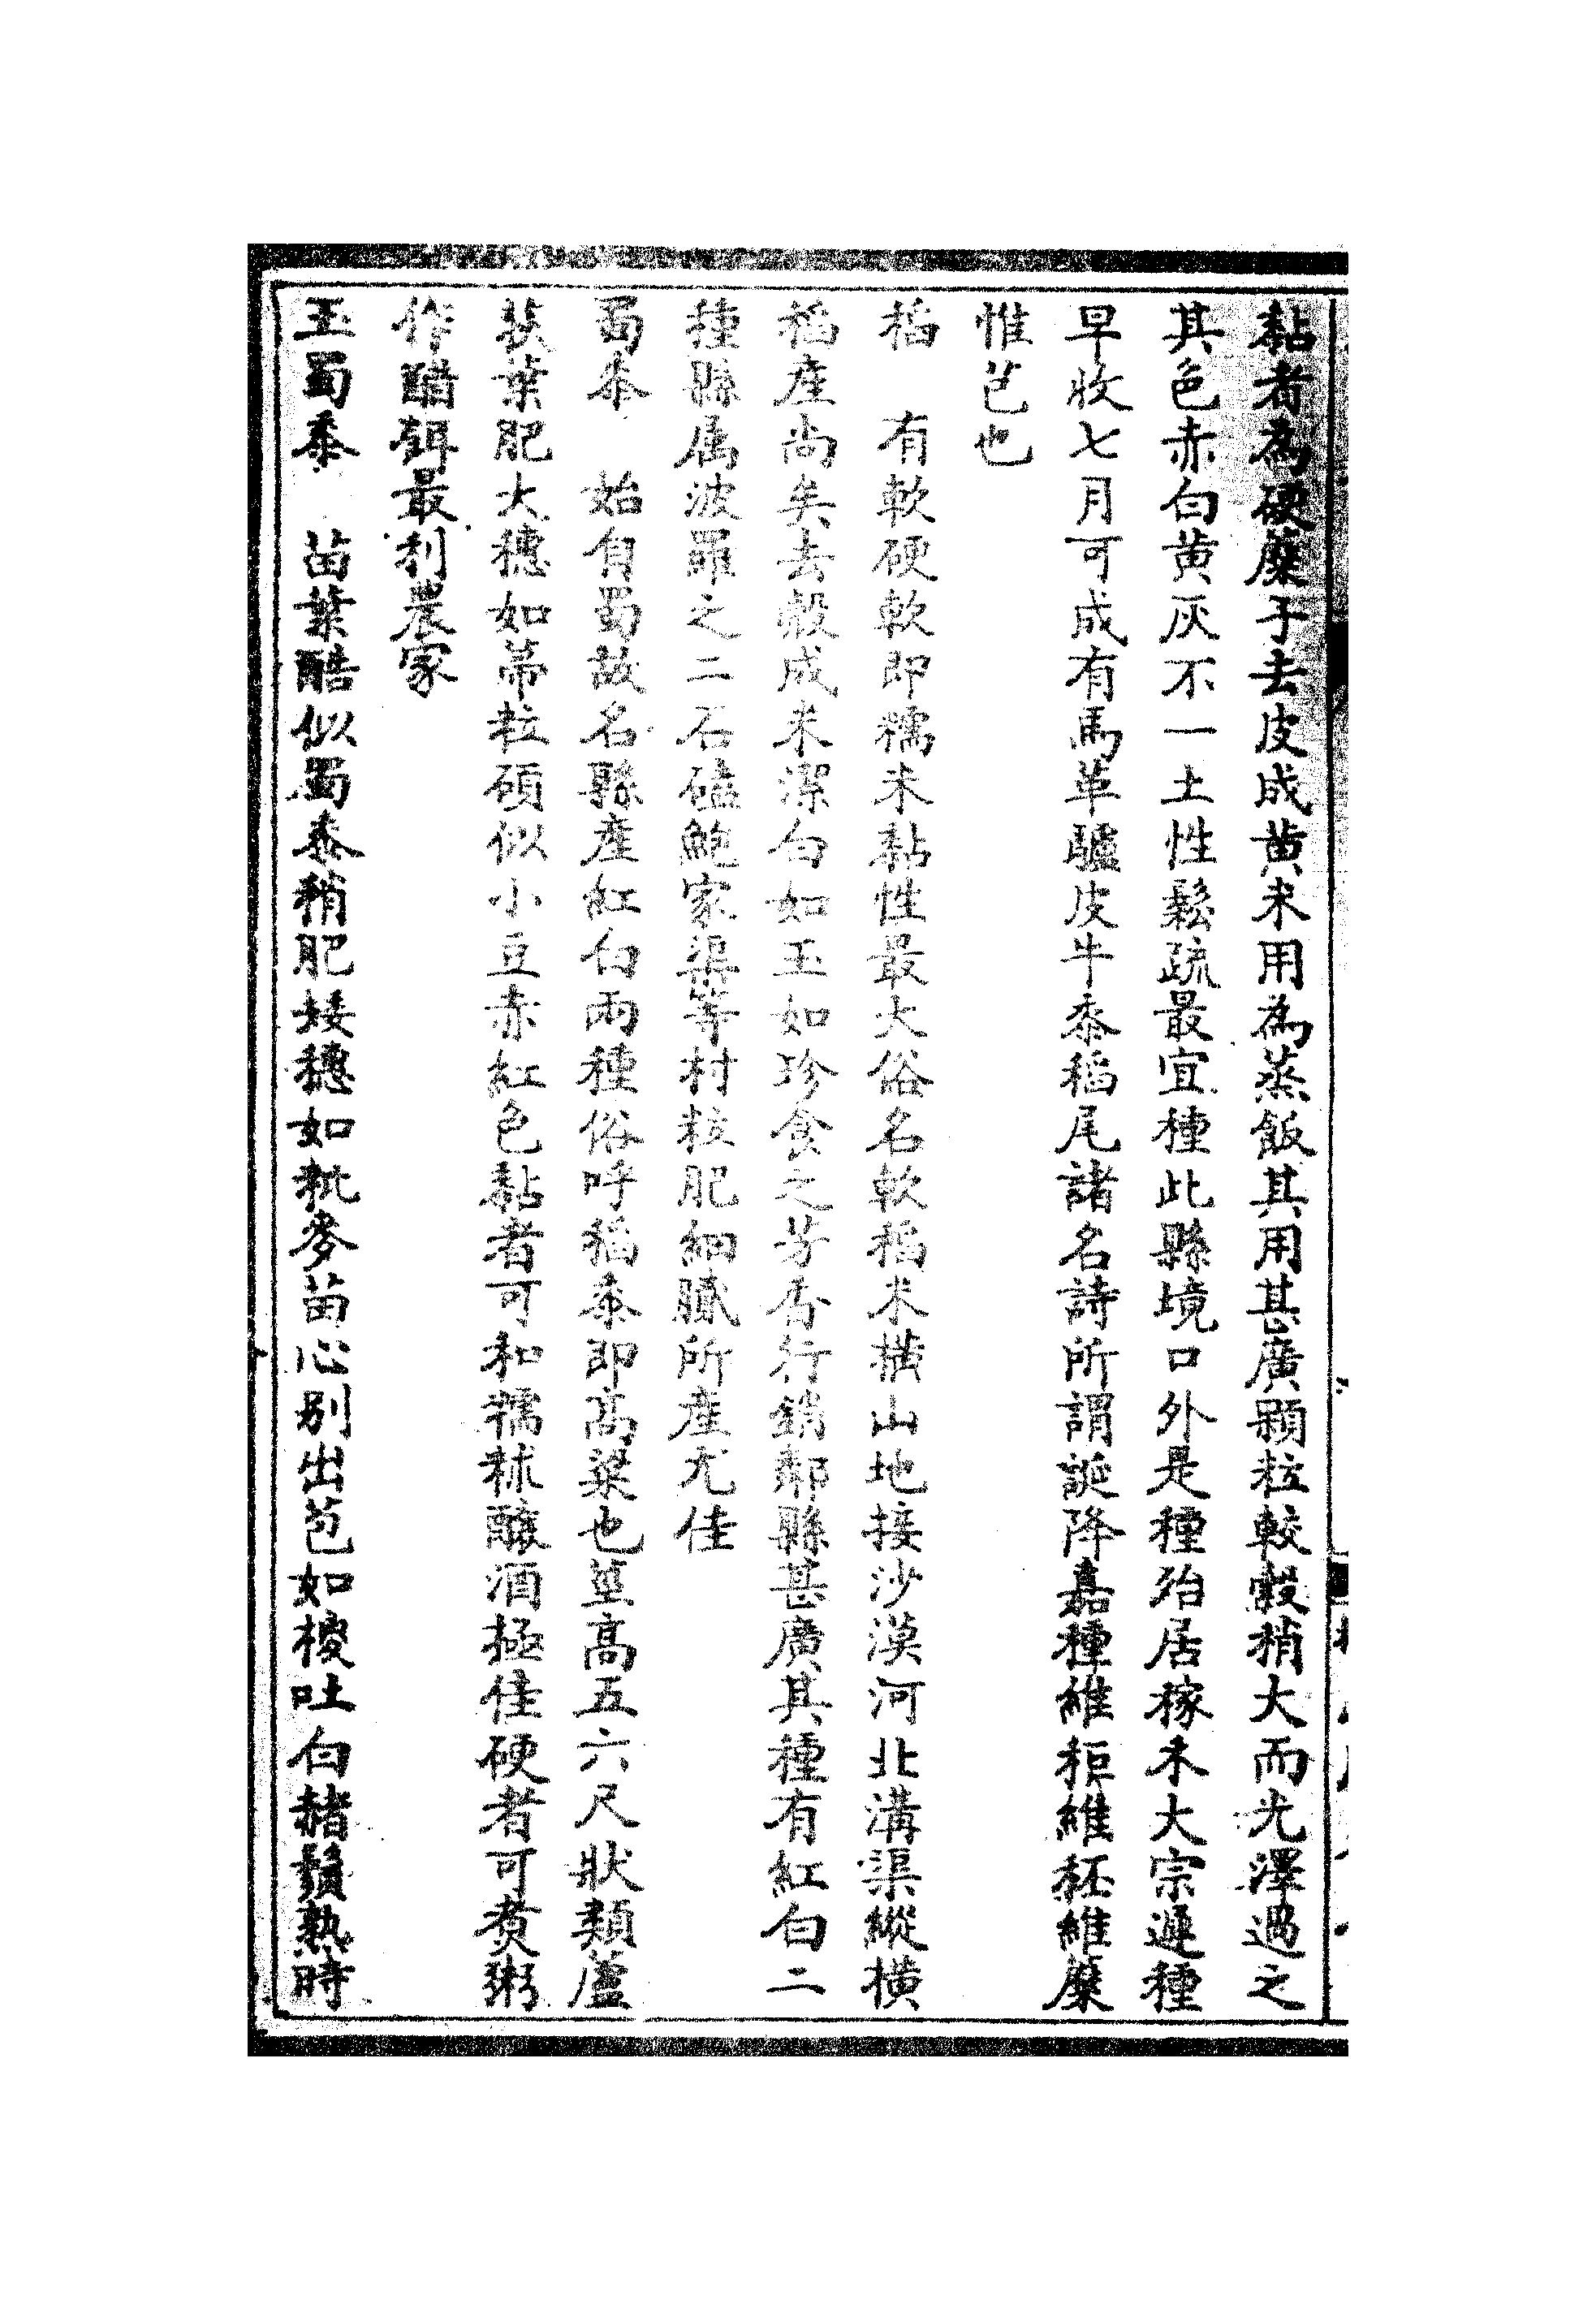 黏者為硬糜子去皮成黄米用為蒸飯其用甚廣顆粒較穀稍大而光澤過之
其色赤白黄灰不一土性鬆疏最宜種此縣境口外是種殆居稼禾大宗遲種
早收七月可成有馬革驢皮牛黍稻尾諸名詩所謂誕降嘉種維秬維秠維穈
惟芑也
稻　有軟硬軟即糯米黏性最大俗名軟稻米橫山地接沙漠河北溝渠縱橫
稻産尚矣去穀成米潔白如玉如珍食之芳香行銷鄰縣甚廣其種有紅白二
種縣屬波羅之二石磕鮑家渠等村粒肥細膩所産尤佳
蜀黍　始自蜀故名縣産紅白兩種俗呼稻黍即高粱也莖高五六尺狀類蘆
荻葉肥大穗如帚粒碩似小豆赤紅色黏者可和糯秫釀酒極佳硬者可煑粥
作醋餌最利農家
玉蜀黍　苗葉酷似蜀黍稍肥矮穗如秕麥苗心别出苞如椶吐白赭鬚熟時